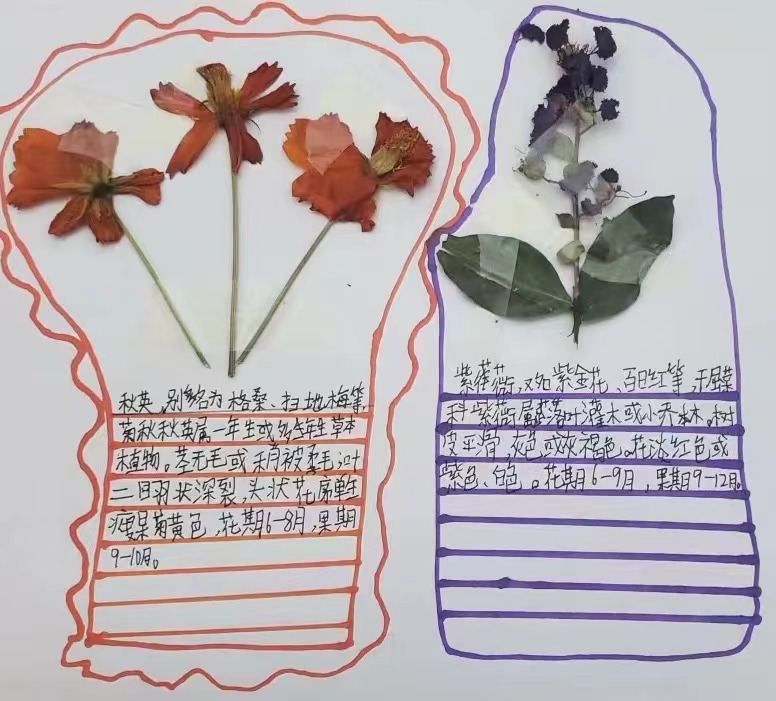 秋英,别名为格桑、扫地梅等
菊秋秋英属一年生或多年生草本
植物。茎无毛或稍被柔毛,叶
二回羽状深裂,头状花序单生
瘦果菊黄色,花期6-8月,果期
9-10月。
紫薇,又如紫金花、百日红等,千屈菜
科紫薇属落叶灌木或小乔木。树
皮平滑,灰色或灰褐色。花淡红色或
紫色、白色。花期6-9月,果期9-12月。